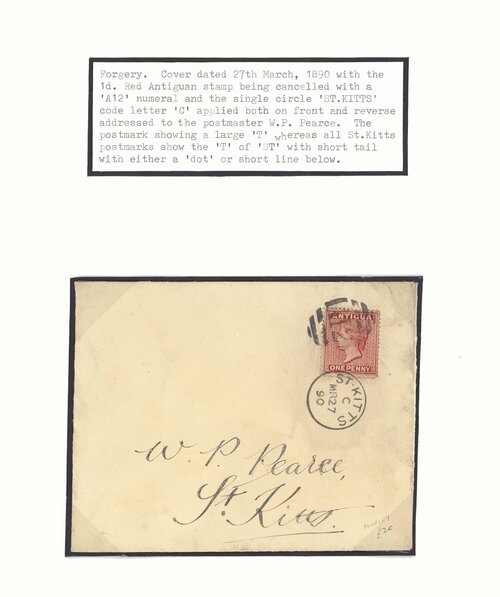 Forgery.  Cover dated 27th March, 1890 with the
1d. Red Antiguan stamp being cancelled with a
'A12' numeral and the single circle 'ST.KITTS'
code letter 'C' applied both on front and reverse
addressed to the postmaster W.P. Pearce.  The
postmark showing a large 'T' wheress all St.Kitts
postmarks show the 'T' of 'ST' with short tail
with either a 'dot' or short line below.
ANTIGUA
ONE PENNY
ST. KITTS
C
MR27
90
W. P. Pearce,
St. Kitts.
FORGERY
£20